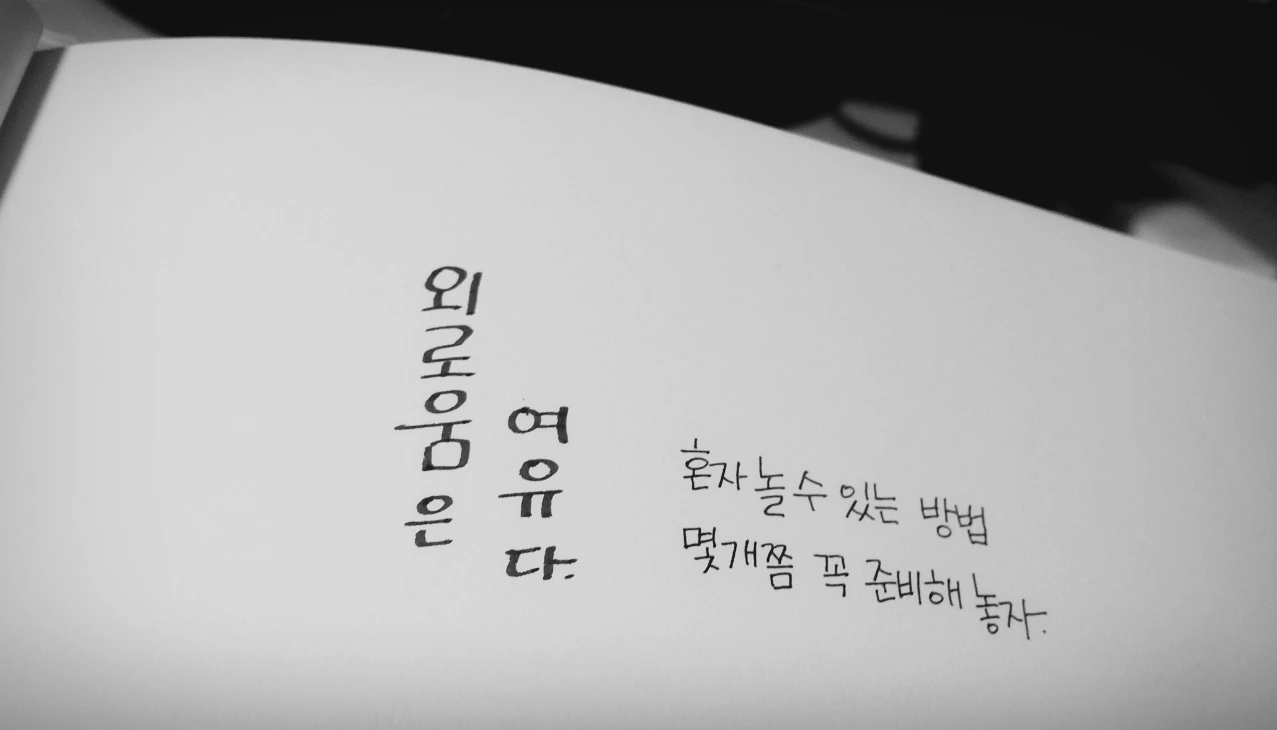 외로움은
여유다.
혼자 놀 수 있는 방법
몇개쯤 꼭 준비해 놓자.